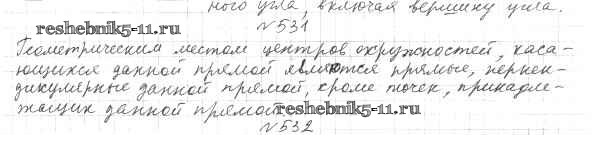 ного угла, включая вершину угла.
№531
reshebnik5-11.ru
Геометрическим местом центров окружностей, каса-
ющихся данной прямой являются прямые, перпен-
дикулярные данной прямой, кроме точек, принадле-
жащих данной прямой.
reshebnik5-11.ru
№532